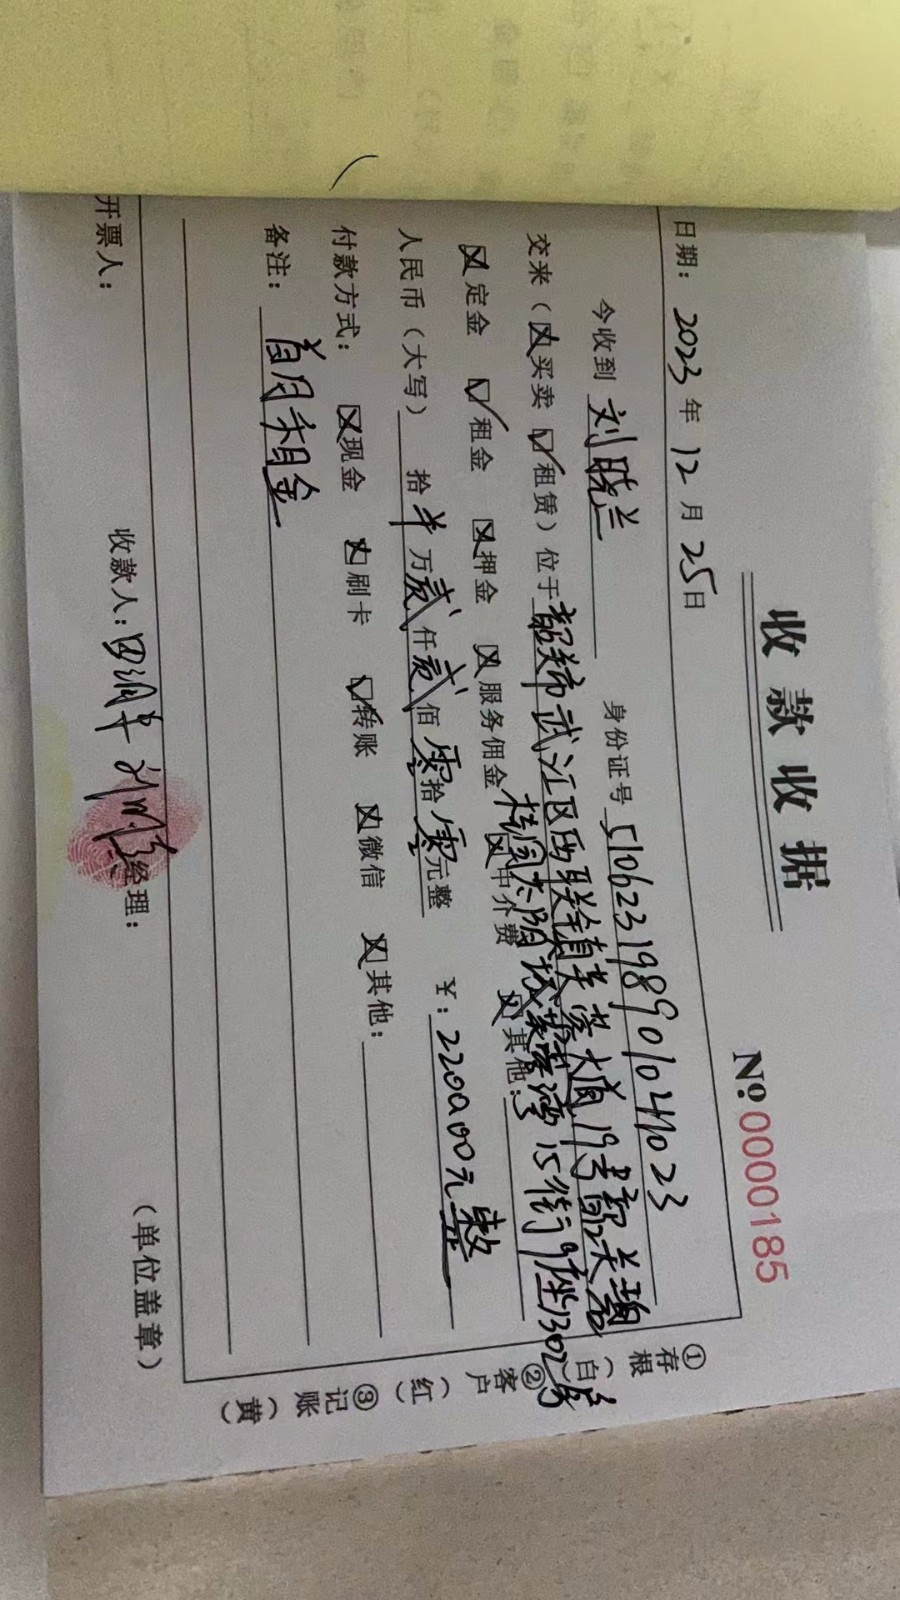 收款收据
No 0000185
日期：2023年12月25日
今收到 刘晓兰 身份证号 510623198901024023
交来（☒买卖 ☑租赁）位于韶关市武江区西联镇芙蓉大道19号韶关碧
桂园太阳城芙蓉湾15街9座1302房
☒定金 ☑租金 ☒押金 ☒服务佣金 ☒中介费 ☒其他：
人民币（大写） 拾 万 贰仟贰佰零拾零元整 ￥：2200.00元整
付款方式：☒现金 ☒刷卡 ☑转账 ☒微信 ☒其他：
备注：首月租金
开票人： 收款人： 经理： （单位盖章）
①存根（白）
②客户（红）
③记账（黄）